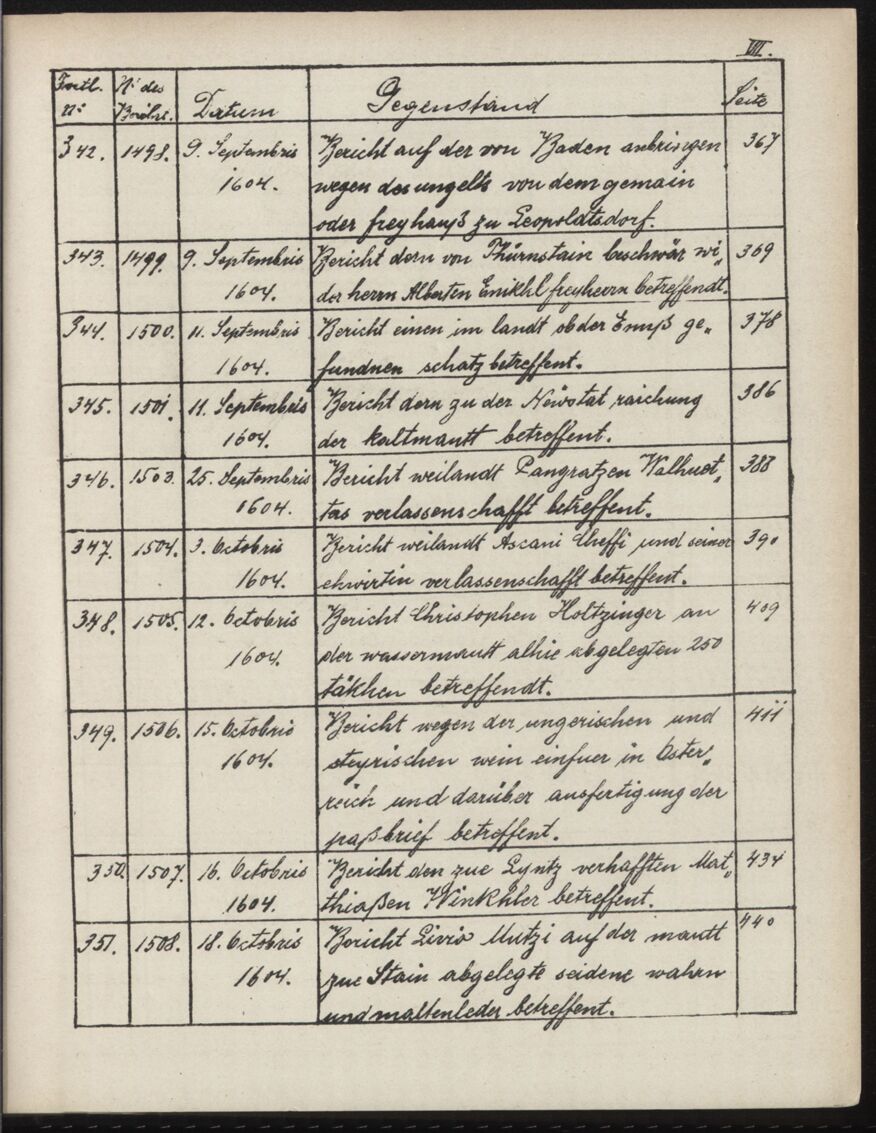 VII.
Fortl. No | No des Berichts. | Datum | Gegenstand | Seite
342. 1498. 9. Septembris Bericht auf der von Baden anbringen 367
1604. wegen des ungelts von dem gemain
oder freyhauß zu Leopoldtsdorf.
343. 1499. 9. Septembris Bericht dern von Thürnstain beschwär wi„ 369
1604. der herrn Alberten Enikhl freyherrn betreffendt.
344. 1500. 11. Septembris Bericht einen im landt ob der Ennß ge„ 378
1604. fundnen schatz betreffent.
345. 1501. 11. Septembris Bericht dern zu der Neüstat raichung 386
1604. der kaltmautt betreffent.
346. 1503. 25. Septembris Bericht weilandt Pangratzen Walhuet„ 388
1604. tas verlassenschafft betreffent.
347. 1504. 3. Octobris Bericht weilandt Ascani Cheffi und seiner 390
1604. ehwirtin verlassenschafft betreffent.
348. 1505. 12. Octobris Bericht Christophen Holtzinger an 409
1604. der wassermautt alhie abgelegten 250
täkhen betreffendt.
349. 1506. 15. Octobris Bericht wegen der ungerischen und 411
1604. steyrischen wein einfuer in Öster„
reich und darüber ausfertigung der
paßbrief betreffent.
350. 1507. 16. Octobris Bericht den zue Lyntz verhafften Mat„ 434
1604. thiaßen Winkhler betreffent.
351. 1508. 18. Octobris Bericht Livio Mutzi auf der mautt 440
1604. zue Stain abgelegte seidene wahrn
und maltenleder betreffent.